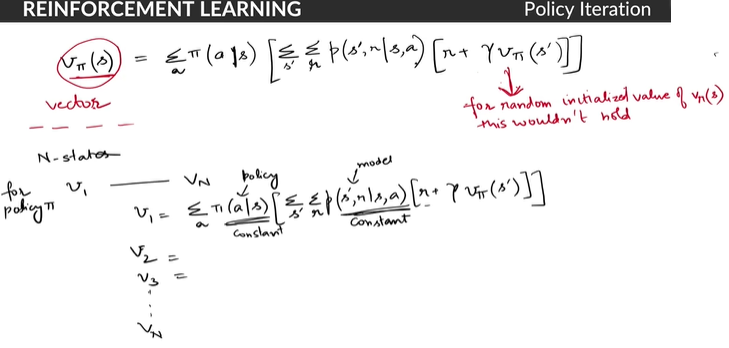 REINFORCEMENT LEARNING
Policy Iteration
vπ(s) = Σa π(a|s) [Σs' Σr p(s',r|s,a) [r + γ vπ(s')]]
vector
for random initialized value of vπ(s)
this wouldn't hold
N-states
for
policy π
v1 —— vN
policy
model
v1 = Σa π(a|s) [Σs' Σr p(s',r|s,a) [r + γ vπ(s')]]
constant
constant
v2 =
v3 =
vN